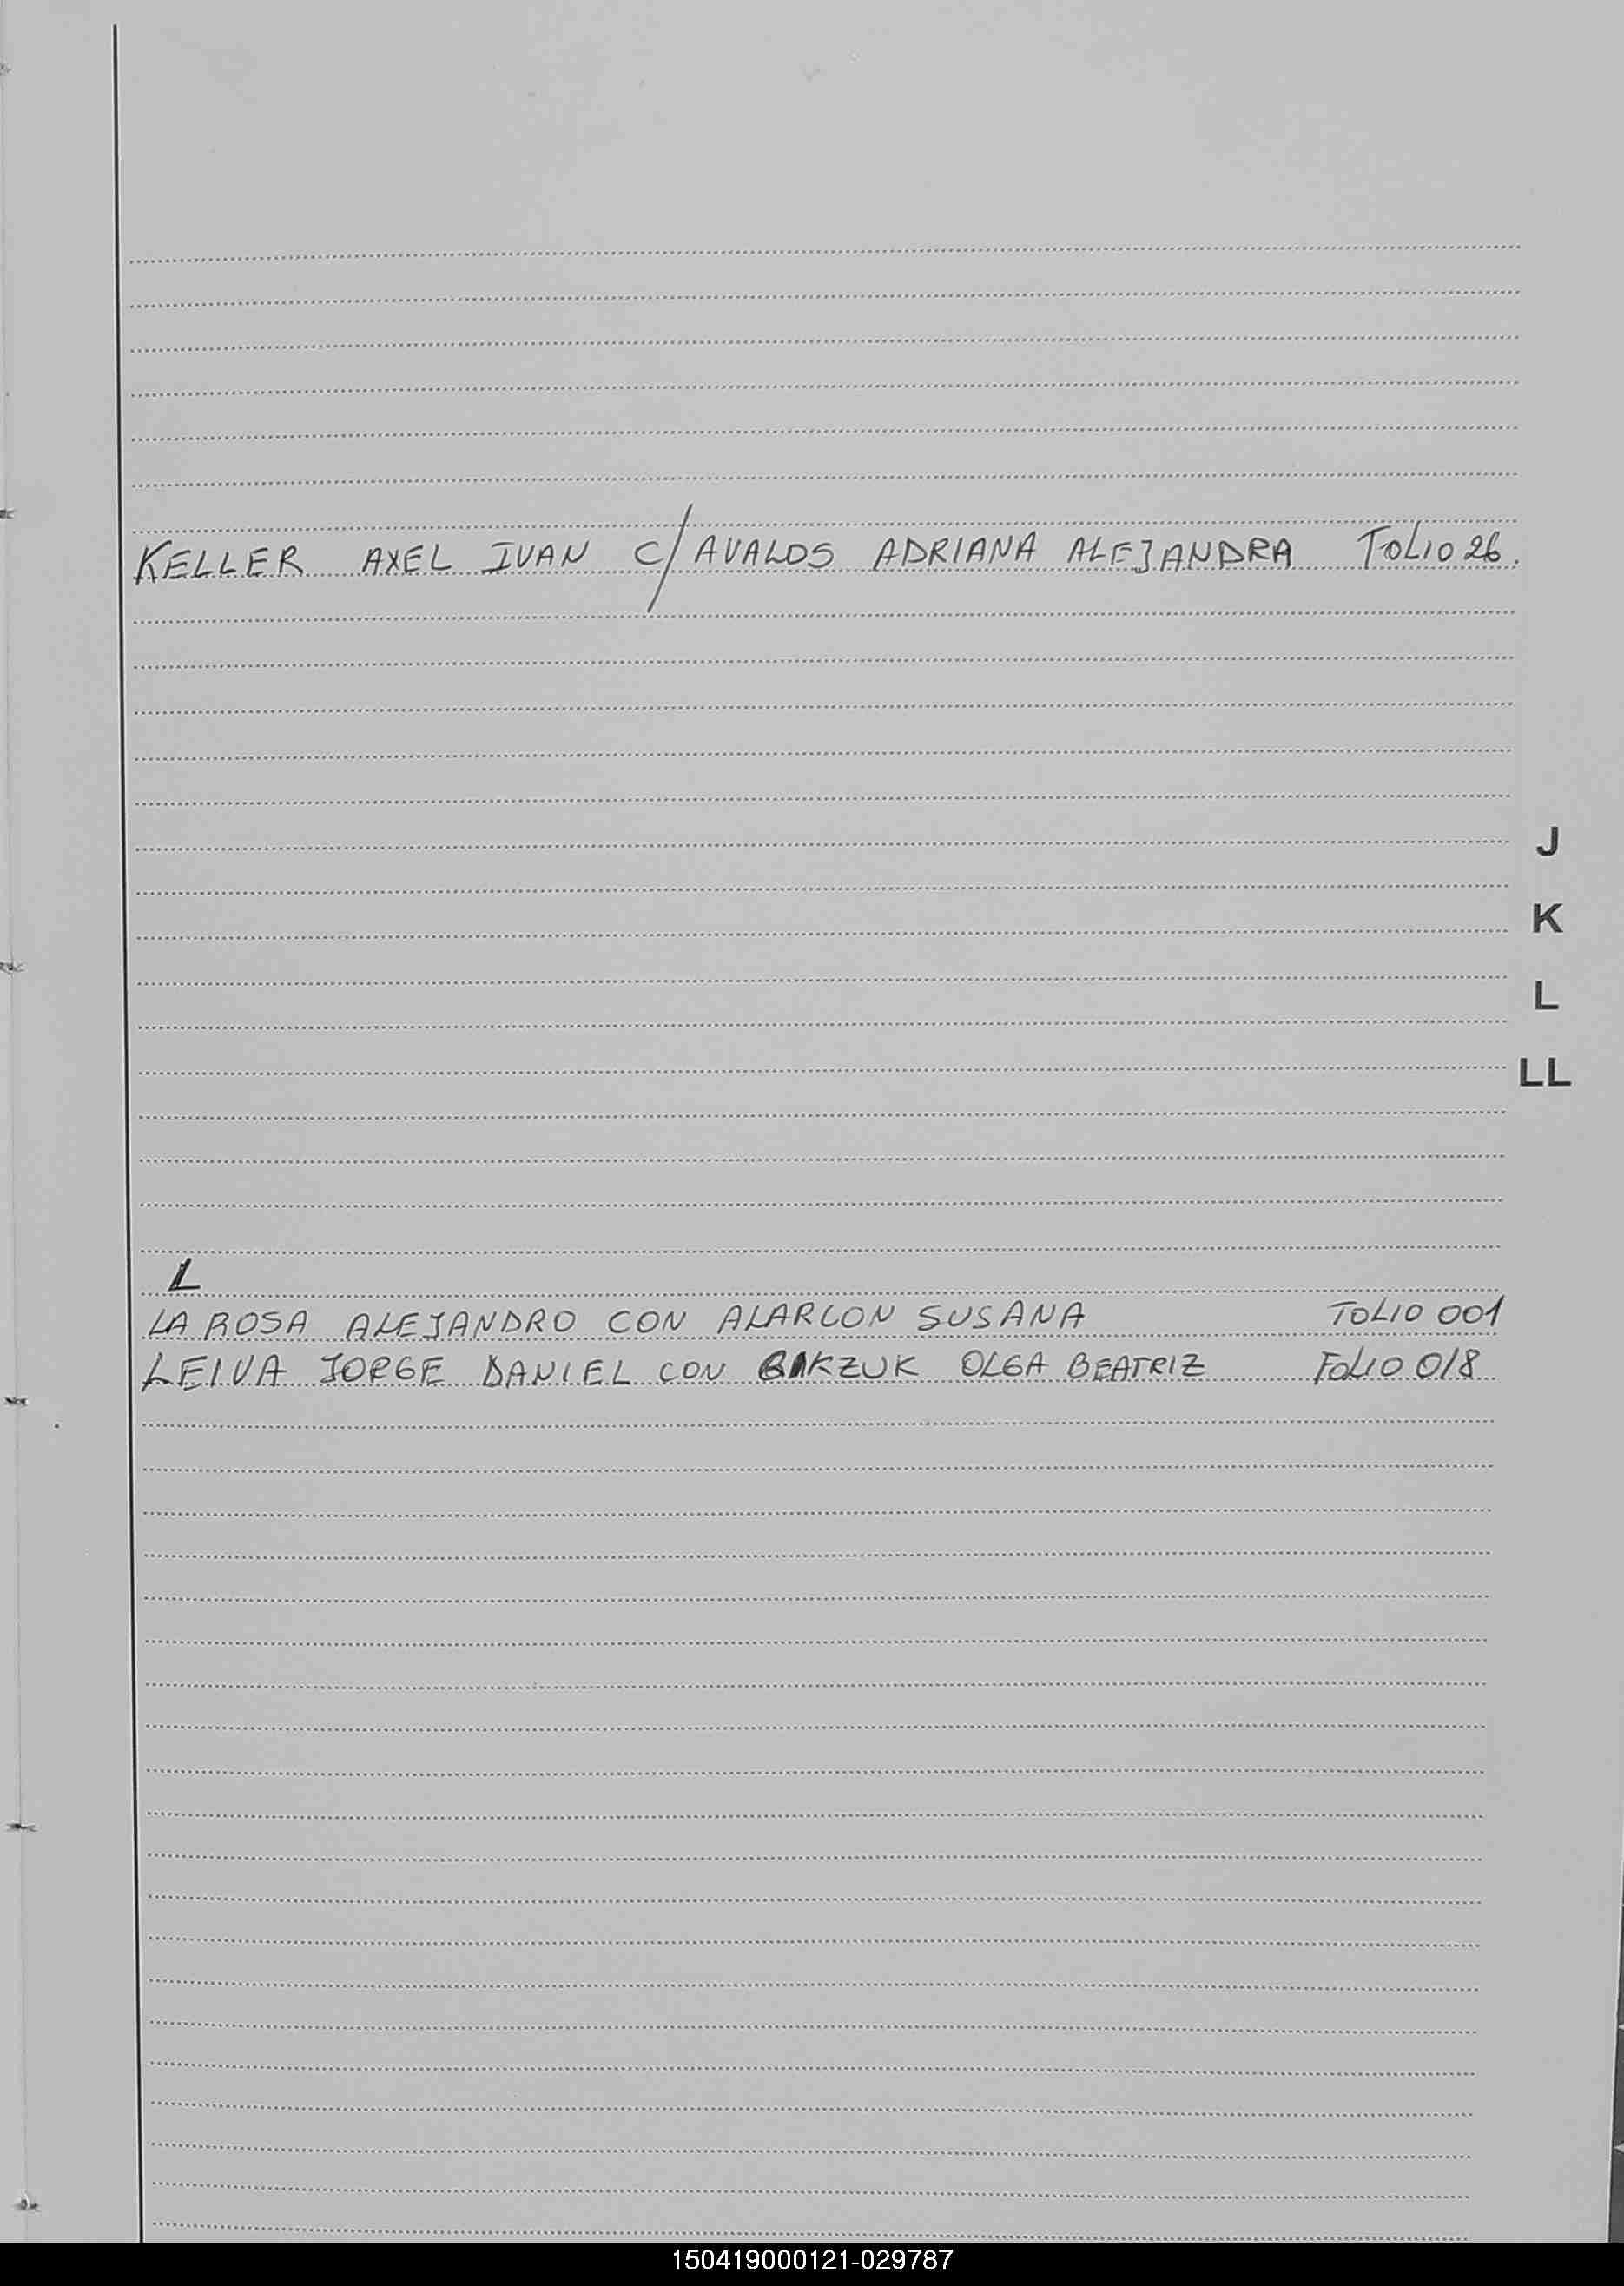 KELLER AXEL IVAN C/ AVALOS ADRIANA ALEJANDRA FOLIO 26.
J
K
L
LL
L
LA ROSA ALEJANDRO CON ALARCON SUSANA FOLIO 001
LEIVA JORGE DANIEL CON OLGA BEATRIZ FOLIO 018
150419000121-029787